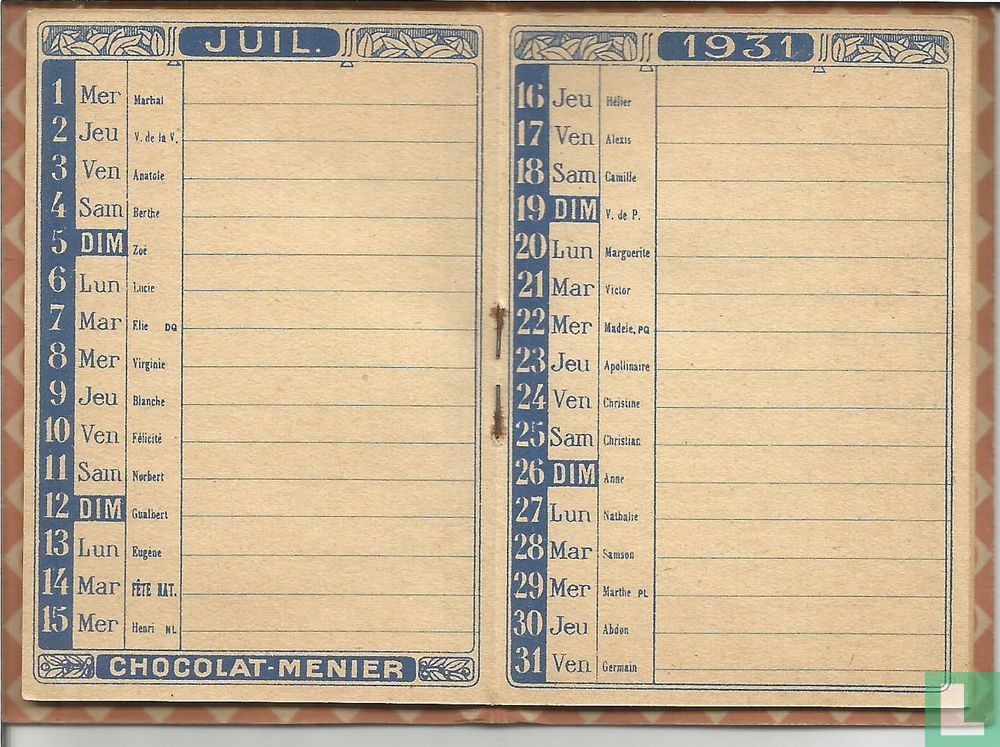 JUIL.
1 Mer Martial
2 Jeu V. de la V.
3 Ven Anatole
4 Sam Berthe
5 DIM Zoé
6 Lun Lucie
7 Mar Elie DQ
8 Mer Virginie
9 Jeu Blanche
10 Ven Félicité
11 Sam Norbert
12 DIM Gualbert
13 Lun Eugène
14 Mar FÊTE NAT.
15 Mer Henri NL
CHOCOLAT-MENIER
1931
16 Jeu Hélier
17 Ven Alexis
18 Sam Camille
19 DIM V. de P.
20 Lun Marguerite
21 Mar Victor
22 Mer Madele. PQ
23 Jeu Apollinaire
24 Ven Christine
25 Sam Christian
26 DIM Anne
27 Lun Nathalie
28 Mar Samson
29 Mer Marthe PL
30 Jeu Abdon
31 Ven Germain